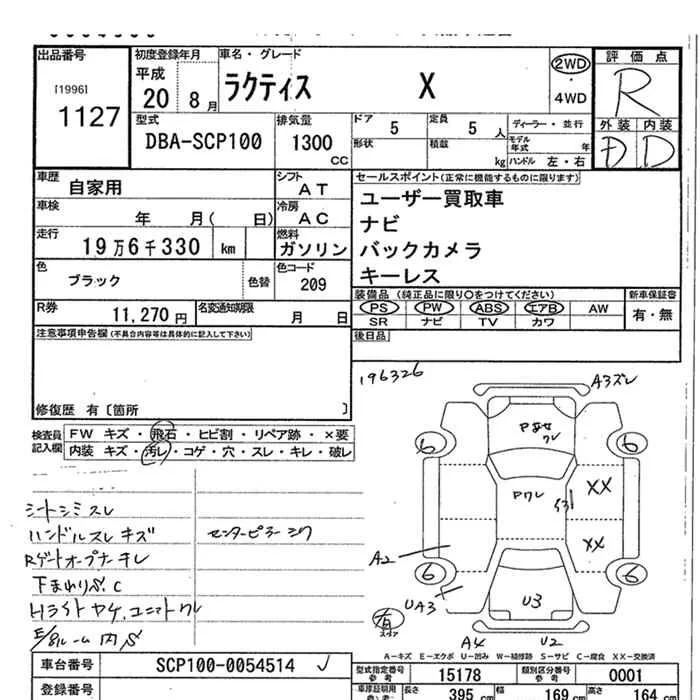 出品番号
[1996]
1127
初度登録年月
平成
20 8月
車名・グレード
ラクティス X
2WD
・
4WD
評価点
R
外装 内装
D D
型式
DBA-SCP100
排気量
1300 CC
ドア 5
定員 5 人
形状
積載 kg
ディーラー・並行
モデル年式 年
ハンドル 左・右
車歴
自家用
シフト
AT
セールスポイント(正常に機能するものに限ります)
ユーザー買取車
ナビ
バックカメラ
キーレス
車検
年 月( 日)
冷房
AC
走行
19万6千330 km
燃料
ガソリン
色
ブラック
色替
色コード
209
装備品(純正品に限り○をつけてください)
PS PW ABS エアB AW
SR ナビ TV カワ
新車保証書
有・無
R券
11,270円
名変通知期限
月 日
後日品
注意事項申告欄(不具合内容等は具体的に記入して下さい)
修復歴 有〔箇所 〕
検査員記入欄
FW キズ・飛石・ヒビ割・リペア跡・×要
内装 キズ・汚レ・コゲ・穴・スレ・キレ・破レ
シートシミスレ
ハンドルスレキズ
センターピラー
Rゲートオープナーキレ
下まわりS.C
Hライトヤケ.
196326
A3ズレ
Pワレ
6
6
XX
XX
A2
6
6
UA3
U3
有
スペア
A4
U2
A－キズ E－エクボ U－凹み W－補修跡 S－サビ C－腐食 XX－交換済
車台番号
SCP100-0054514
型式指定番号
参考
15178
類別区分番号
参考
0001
登録番号
長さ 395 cm
幅 169 cm
高さ 164 cm